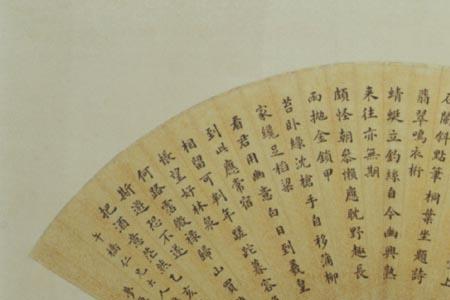 石闌斜點筆桐葉坐題詩
翡翠鳴衣術
蜻蜓立釣絲自今幽興熟
來往亦無期
頗怪朝參懶應耽野趣長
雨拋金鎖甲
苔卧綠沈槍手自移蒲柳
家纔足稻粱
看君用幽意白日到羲皇
到此應常宿
相留可判年蹉跎暮容
悵望好林泉
何路霑微祿歸山買
斯遊恐不遂
把酒意茫然乙亥
午橋仁兄大人